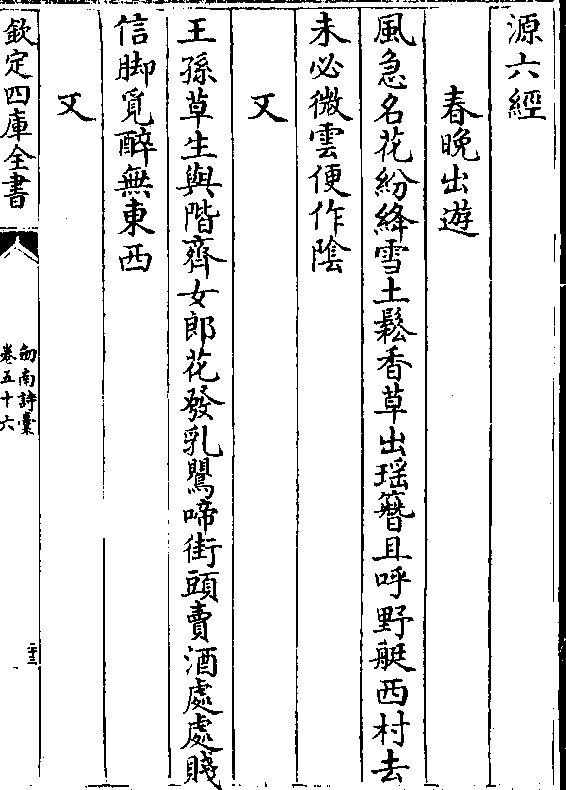 源六經
春晚出遊
風急名花紛絳雪土鬆香草出瑶簪且呼野艇西村去
未必微雲便作陰
又
王孫草生與階齊女郎花發乳鸎啼街頭賣酒處處賤
信脚覓醉無東西
又
欽定四庫全書
劒南詩稾
卷五十六
二十三